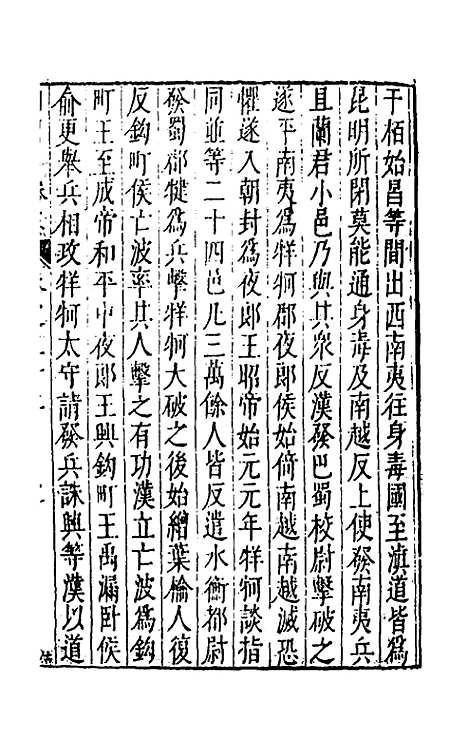 于栢始昌等間出西南夷往身毒國至滇道皆爲
昆明所閉莫能通身毒及南越反上使發南夷兵
且蘭君小邑乃與其衆反漢發巴蜀校尉擊破之
遂平南夷爲牂牁郡夜郎侯始倚南越南越滅恐
懼遂入朝封爲夜郎王昭帝始元元年牂牁談指
同並等二十四邑凡三萬餘人皆反遣水衡都尉
發蜀郡犍爲兵擊牂牁大破之後始繒葉榆人復
反鈎町侯亡波率其人擊之有功漢立亡波爲鈎
町王至成帝和平中夜郎王興鈎町王禹漏卧侯
俞更舉兵相攻牂牁太守請發兵誅興等漢以道